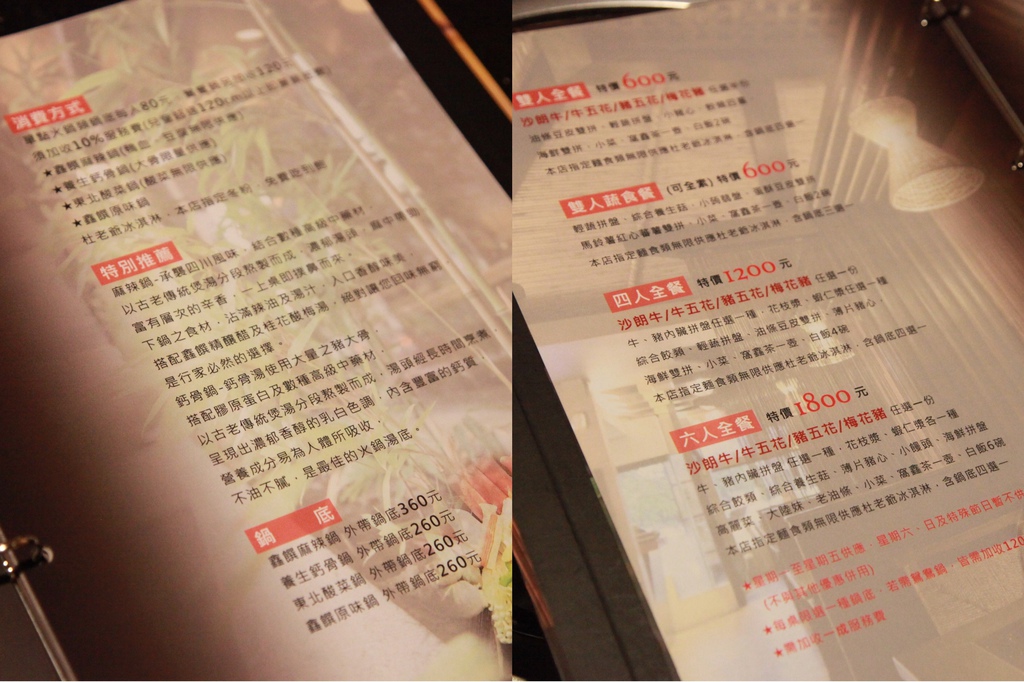 消費方式
單點火鍋類鍋底每人80元
須加收10%服務費
★鑫饌麻辣鍋(鴨血、豆腐無限供應)
★養生鈣骨鍋(大骨限量供應)
★東北酸菜鍋(酸菜無限供應)
★鑫饌原味鍋
杜老爺冰淇淋、本店指定冬粉、免費吃到飽
特別推薦
麻辣鍋-承襲四川風味，結合數種高級中藥材，
以古老傳統煲湯分段熬製而成，濃郁湯頭，麻中帶勁，
富有層次的辛香，一上桌即撲鼻而來，
下鍋之食材，沾滿辣油及湯汁，入口香醇味美，
搭配鑫饌精釀醋及桂花酸梅湯，絕對讓您回味無窮
是行家必然的選擇。
鈣骨鍋-鈣骨湯使用大量之豬大骨，
搭配膠原蛋白及數種高級中藥材，
以古老傳統煲湯分段熬製而成，湯頭經長時間烹煮，
呈現出濃郁香醇的乳白色調，內含豐富的鈣質，
營養成分易為人體所吸收，
不油不膩，是最佳的火鍋湯底。
鍋 底
鑫饌麻辣鍋 外帶鍋底360元
養生鈣骨鍋 外帶鍋底260元
東北酸菜鍋 外帶鍋底260元
鑫饌原味鍋 外帶鍋底260元
雙人全餐 特價600元
沙朗牛/牛五花/豬五花/梅花豬 任選兩份
油條豆皮雙拼、輕蔬拼盤、小豬心、
海鮮雙拼、小菜、窩鑫茶一壺、白飯2碗
本店指定麵食類無限供應杜老爺冰淇淋，含鍋底四選一
雙人蔬食餐 (可全素) 特價600元
輕蔬拼盤、綜合養生菇、小碗韓盤、油條豆皮雙拼
馬鈴薯紅心蕃薯雙拼、小菜、窩鑫茶一壺、白飯2碗
本店指定麵食類無限供應杜老爺冰淇淋，含鍋底三選一
四人全餐 特價1200元
沙朗牛/牛五花/豬五花/梅花豬 任選一份
牛、豬內臟拼盤任選一種，花枝漿、蝦仁漿任選一種
綜合餃類、輕蔬拼盤、油條豆皮雙拼、薄片豬心，
海鮮雙拼、小菜、窩鑫茶一壺、白飯4碗
本店指定麵食類無限供應杜老爺冰淇淋，含鍋底四選一
六人全餐 特價1800元
沙朗牛/牛五花/豬五花/梅花豬 任選一份
牛、豬內臟拼盤 任選一種，花枝漿、蝦仁漿各一種
綜合餃類、綜合養生菇、薄片豬心、小饅頭、海鮮拼盤
高麗菜、大陸妹、老油條、小菜、窩鑫茶一壺、白飯6碗
本店指定麵食類無限供應杜老爺冰淇淋，含鍋底四選一
★星期一至星期五供應，星期六、日及特殊節日暫不供
(不與其他優惠併用)
★每桌限選一種鍋底，若需鴛鴦鍋，皆需加收120
★需加收一成服務費